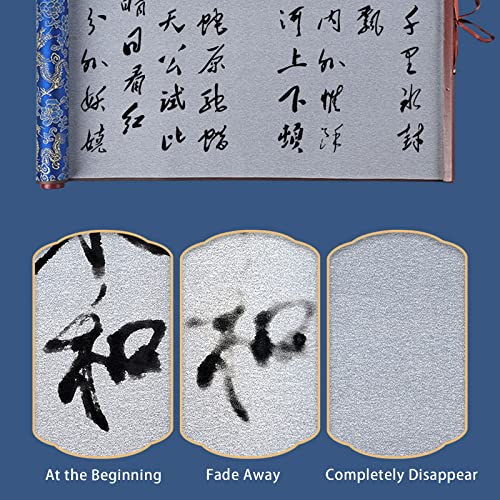 千里冰封
飘
内外惟馀
河上下顿
蛇原驰蜡
天公试比
晴日看红
分外妖娆
和
和
At the Beginning
Fade Away
Completely Disappear